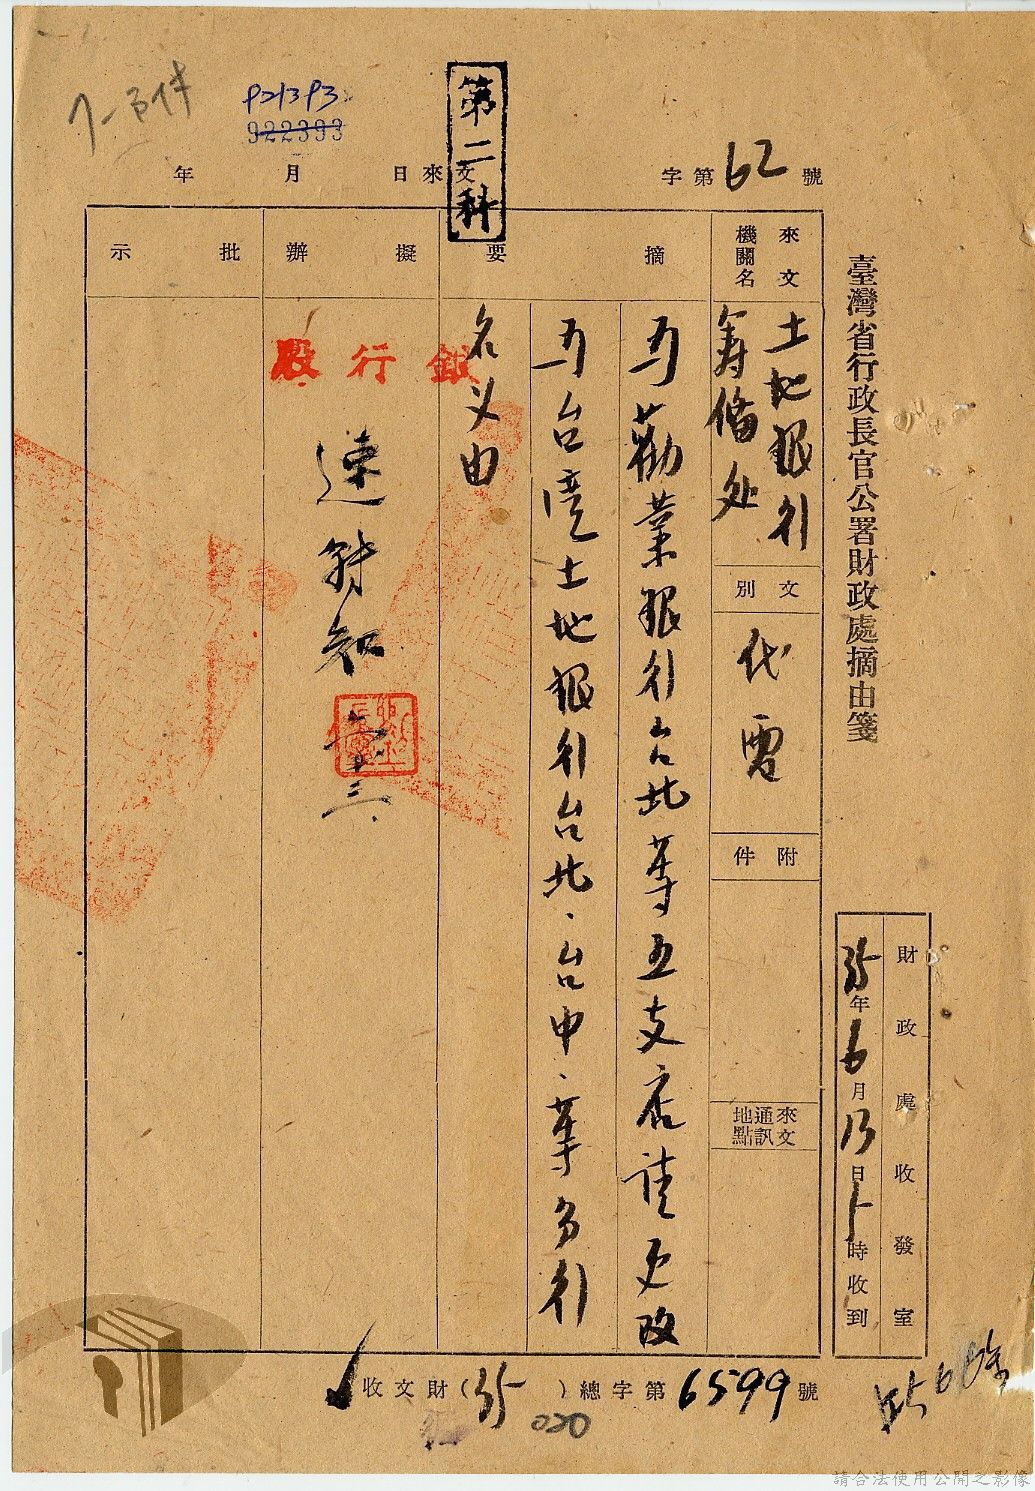 臺灣省行政長官公署財政處摘由箋
財政處收發室
35年6月13日 時收到
年 月 日來文 字第62號
第二科
922393
來文機關名
土地銀行
籌備处
文別
代電
附件
來文通訊地點
摘要
為勸業銀行台北等五支店請更改
為台湾土地銀行台北、台中、等分行
名义由
擬辦
銀行股
速転知
批示
收文財(35)總字第6599號
020
請合法使用公開之影像